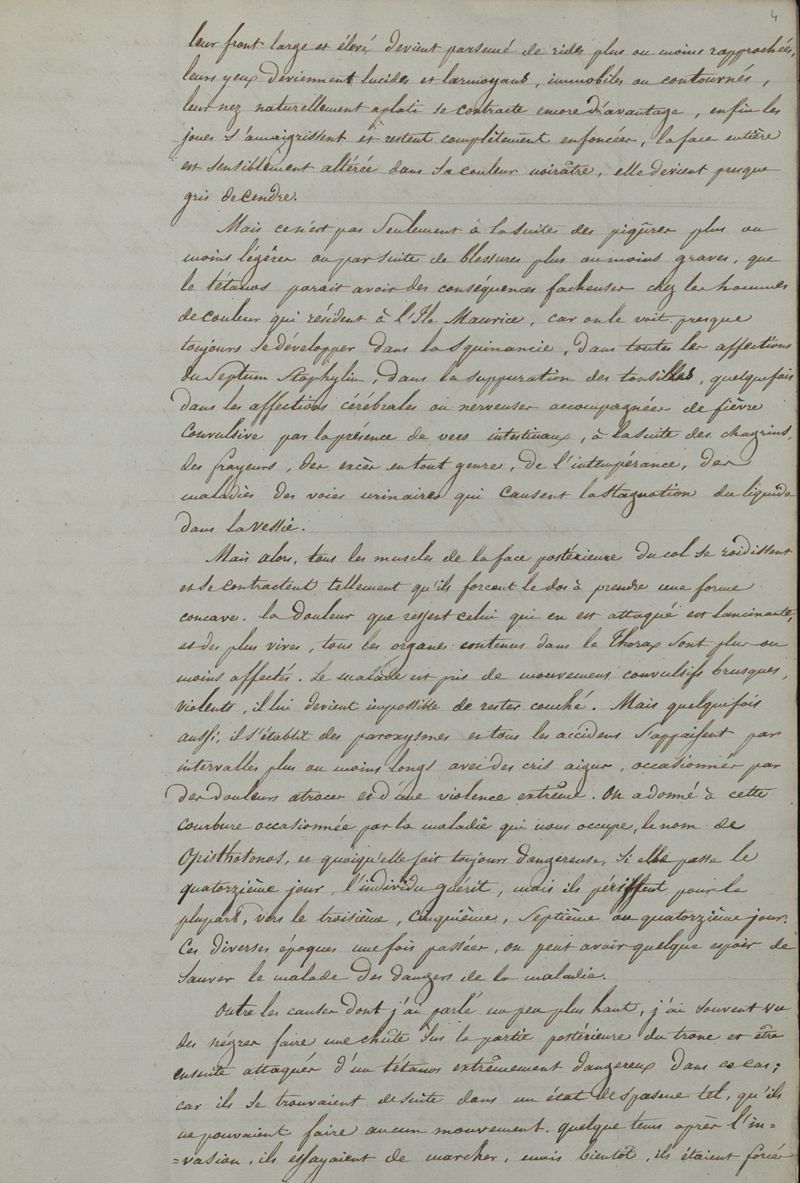 4
leur front large et élevé devient parsemé de rides plus ou moins rapprochées,
leurs yeux deviennent lucides et larmoyans, immobiles ou contournés,
leur nez naturellement aplati se contracte encore d'avantage, enfin les
joues s'amaigrissent et restent complètement enfoncées, la face entière
est sensiblement altérée dans sa couleur noirâtre, elle devient presque
gris de cendre.
Mais ce n'est pas seulement à la suite des piqûres plus ou
moins légères ou par suite de blessures plus ou moins graves, que
le tétanos parait avoir des conséquences facheuses chez les hommes
de couleur qui résident à l'Ile Maurice, car on le voit presque
toujours se développer dans la squinancie, dans toutes les affections
du Septum Staphylin, dans la suppuration des tonsilles, quelquefois
dans les affections cérébrales ou nerveuses accompagnées de fièvre
convulsive par la présence de vers intestinaux, à la suite des chagrins,
des frayeurs, des excès en tout genre, de l'intempérance, des
maladies des voies urinaires qui causent la stagnation du liquide
dans la vessie.
Mais alors, tous les muscles de la face postérieure du col se roidissent
et se contractent tellement qu'ils forcent le dos à prendre une forme
concave. la douleur que ressent celui qui en est attaqué est lancinante,
et des plus vives, tous les organes contenus dans le Thorax sont plus ou
moins affectés. Le malade est pris de mouvemens convulsifs brusques,
violents, il lui devient impossible de rester couché. Mais quelquefois
aussi, il s'établit des paroxysmes et tous les accidens s'appaisent par
intervalles plus ou moins longs avec des cris aigus, occasionnés par
des douleurs atroces et d'une violence extrême. On a donné à cette
courbure occasionnée par la maladie qui nous occupe, le nom de
Opisthotonos, et quoiqu'elle soit toujours dangereuse, si elle passe le
quatorzième jour, l'individu guérit, mais ils périssent pour la
plupart, vers le troisième, cinquième, septième ou quatorzième jour.
Ces diverses époques une fois passées, on peut avoir quelque espoir de
sauver le malade des dangers de la maladie.
Outre les causes dont j'ai parlé un peu plus haut, j'ai souvent vu
des nègres faire une chûte sur la partie postérieure du tronc et être
ensuite attaqués d'un tétanos extrêmement dangereux dans ce cas;
car ils se trouvaient de suite dans un état de spasme tel, qu'ils
ne pouvaient faire aucun mouvement. quelque tems après l'in=
=vasion, ils essayaient de marcher, mais bientôt, ils étaient forcés